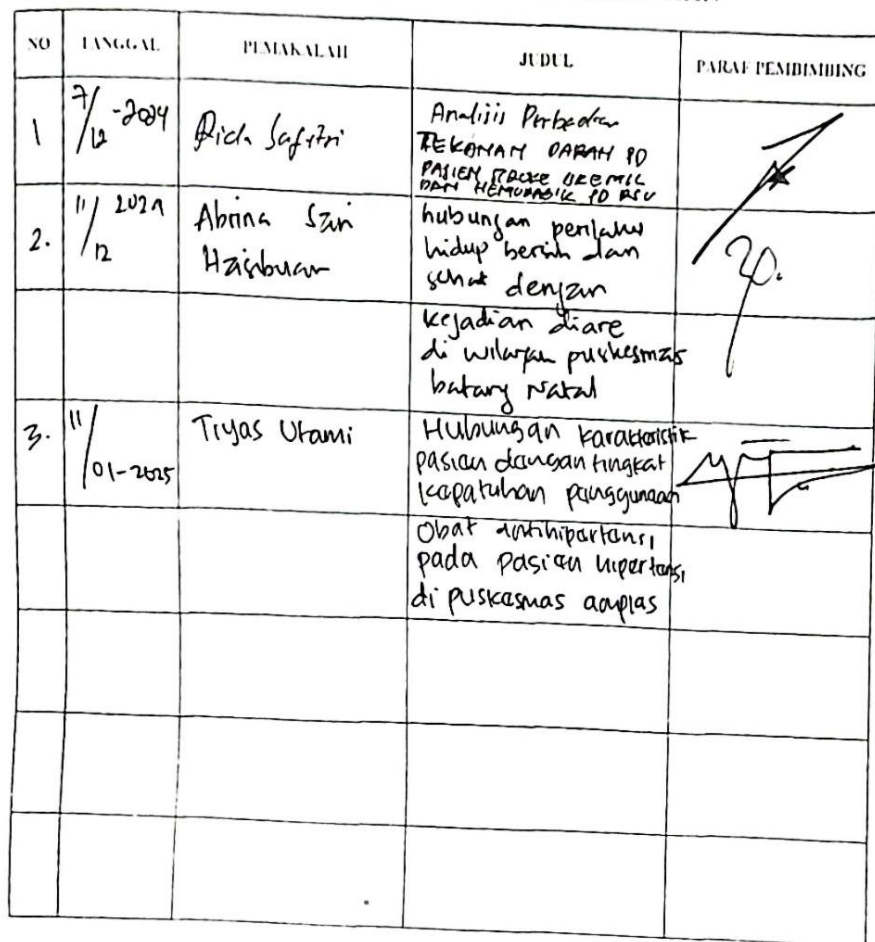 NO TANGGAL PEMAKALAH JUDUL PARAF PEMBIMBING
1 7/12-2024 Rida Safitri
Analisis Perbedaan
TEKANAN DARAH PD
PASIEN STROKE
DAN HEMORAGIK PD RSU
2. 11/12 2024 Abrina Sari
Hasibuan
hubungan perilaku
hidup bersih dan
sehat dengan
kejadian diare
di wilayah puskesmas
batang Natal
3. 11/01-2025 Tiyas Utami
Hubungan karakteristik
pasien dengan tingkat
kepatuhan penggunaan
Obat antihipertensi
pada pasien hipertensi
di puskesmas amplas